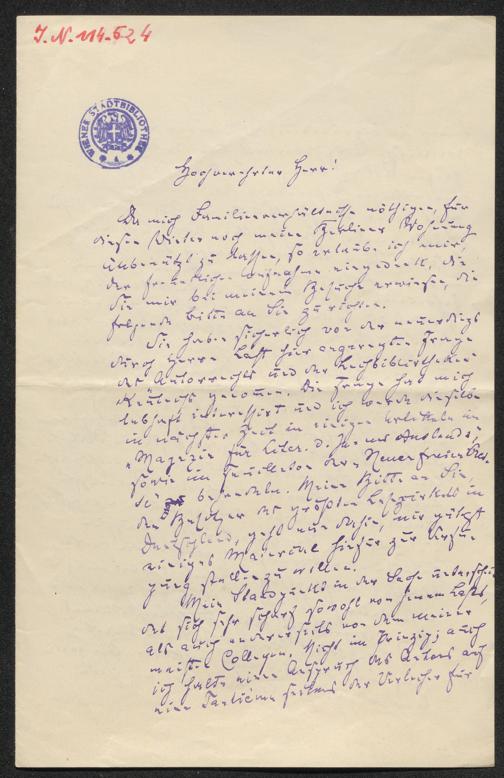 J. N. 114.524
WIENER STADTBIBLIOTHEK
Hochverehrter Herr!
Da mich Familienverhältnisse nöthigen, für
diesen Winter noch meine Berliner Wohnung
unbenützt zu lassen, so erlaube ich mir,
der freundlichen Aufnahme eingedenk, die
Sie mir bei meinem Besuche erwiesen, die
folgende Bitte an Sie zu richten.
Sie haben sicherlich von der neuerdings
durch Herrn Last hier angeregten Frage
des Autorrechts und der Leihbibliotheken
Kenntnis genommen. Die Frage hat mich
lebhaft interessirt und ich werde dieselbe
in nächster Zeit in einigen Artikeln im
„Magazin für Liter. d. In- und Auslands",
sowie im Feuilleton der „Neuen freien Pres-
se" behandeln. Meine Bitte an Sie,
den Besitzer des größten Leihinstituts in
Deutschland, geht nun dahin, mir gütigst
einiges Material hiefür zur Verfü-
gung stellen zu wollen.
Mein Standpunkt in der Sache unterschei-
det sich sehr scharf sowohl von jenem Lasts,
als auch andererseits von dem meiner
meisten Collegen. Nicht im Prinzip; auch
ich halte einen Anspruch des Autors auf
eine Tantième seitens der Verleiher für